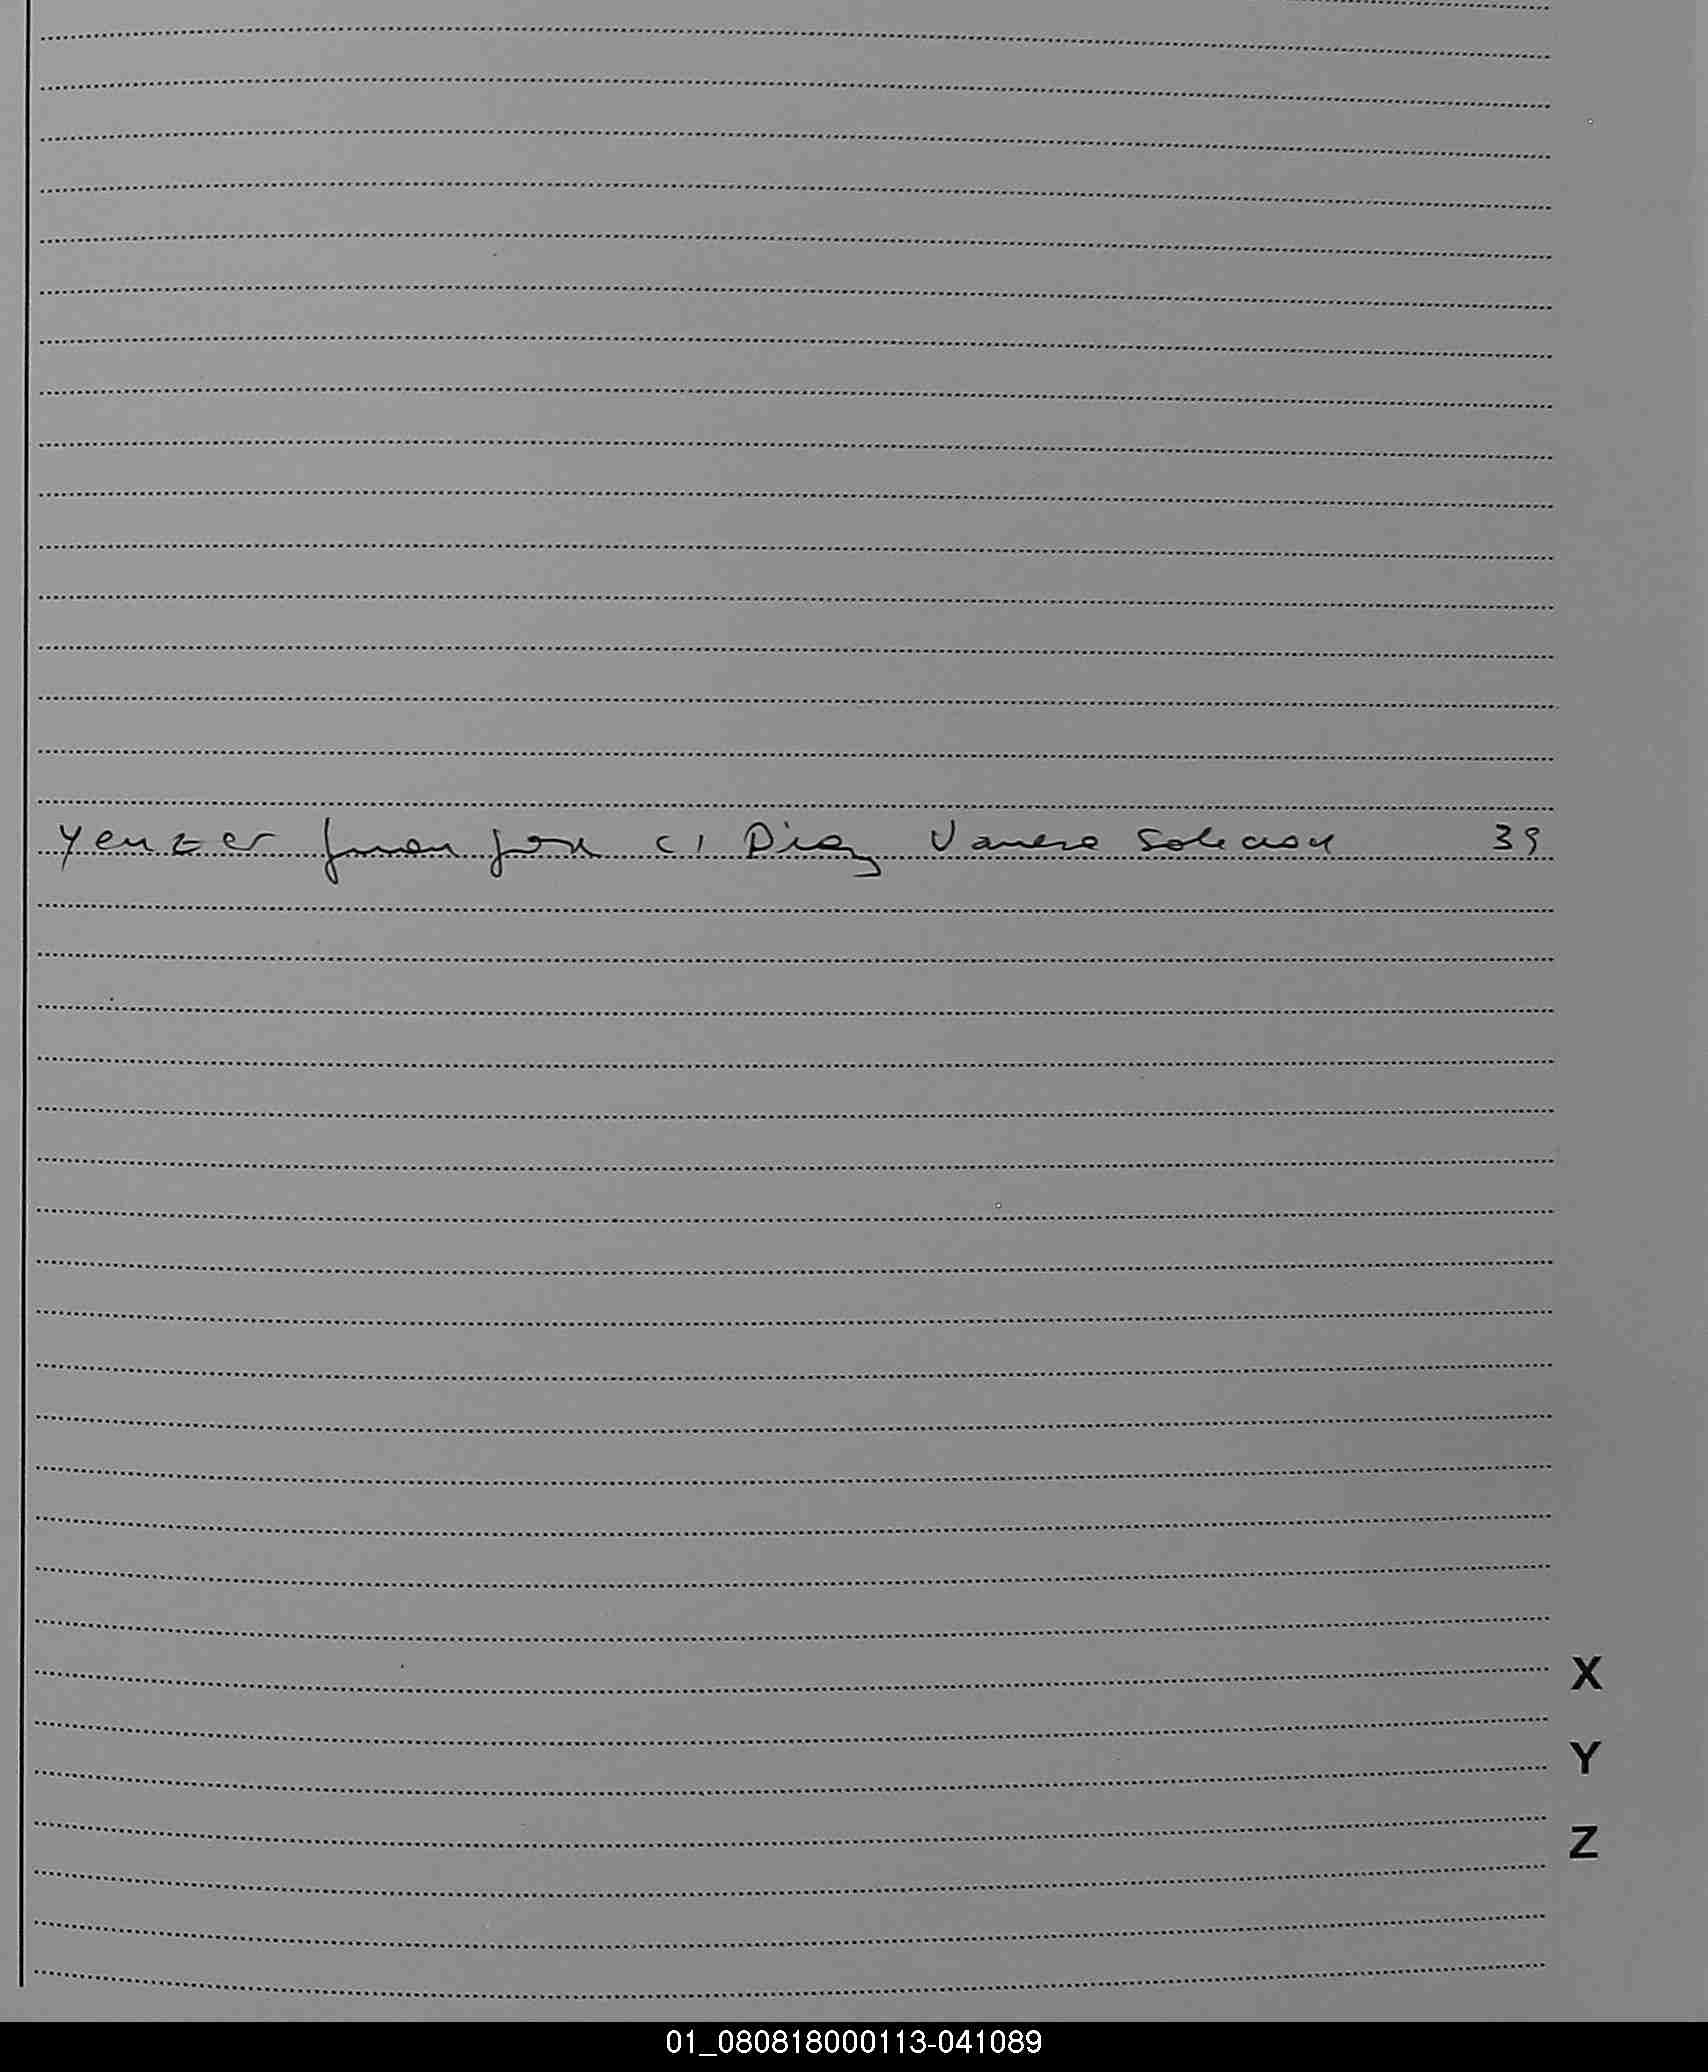 Yenzer Juan José c/ Diaz Vanesa Soledad 39
X
Y
Z
01_080818000113-041089